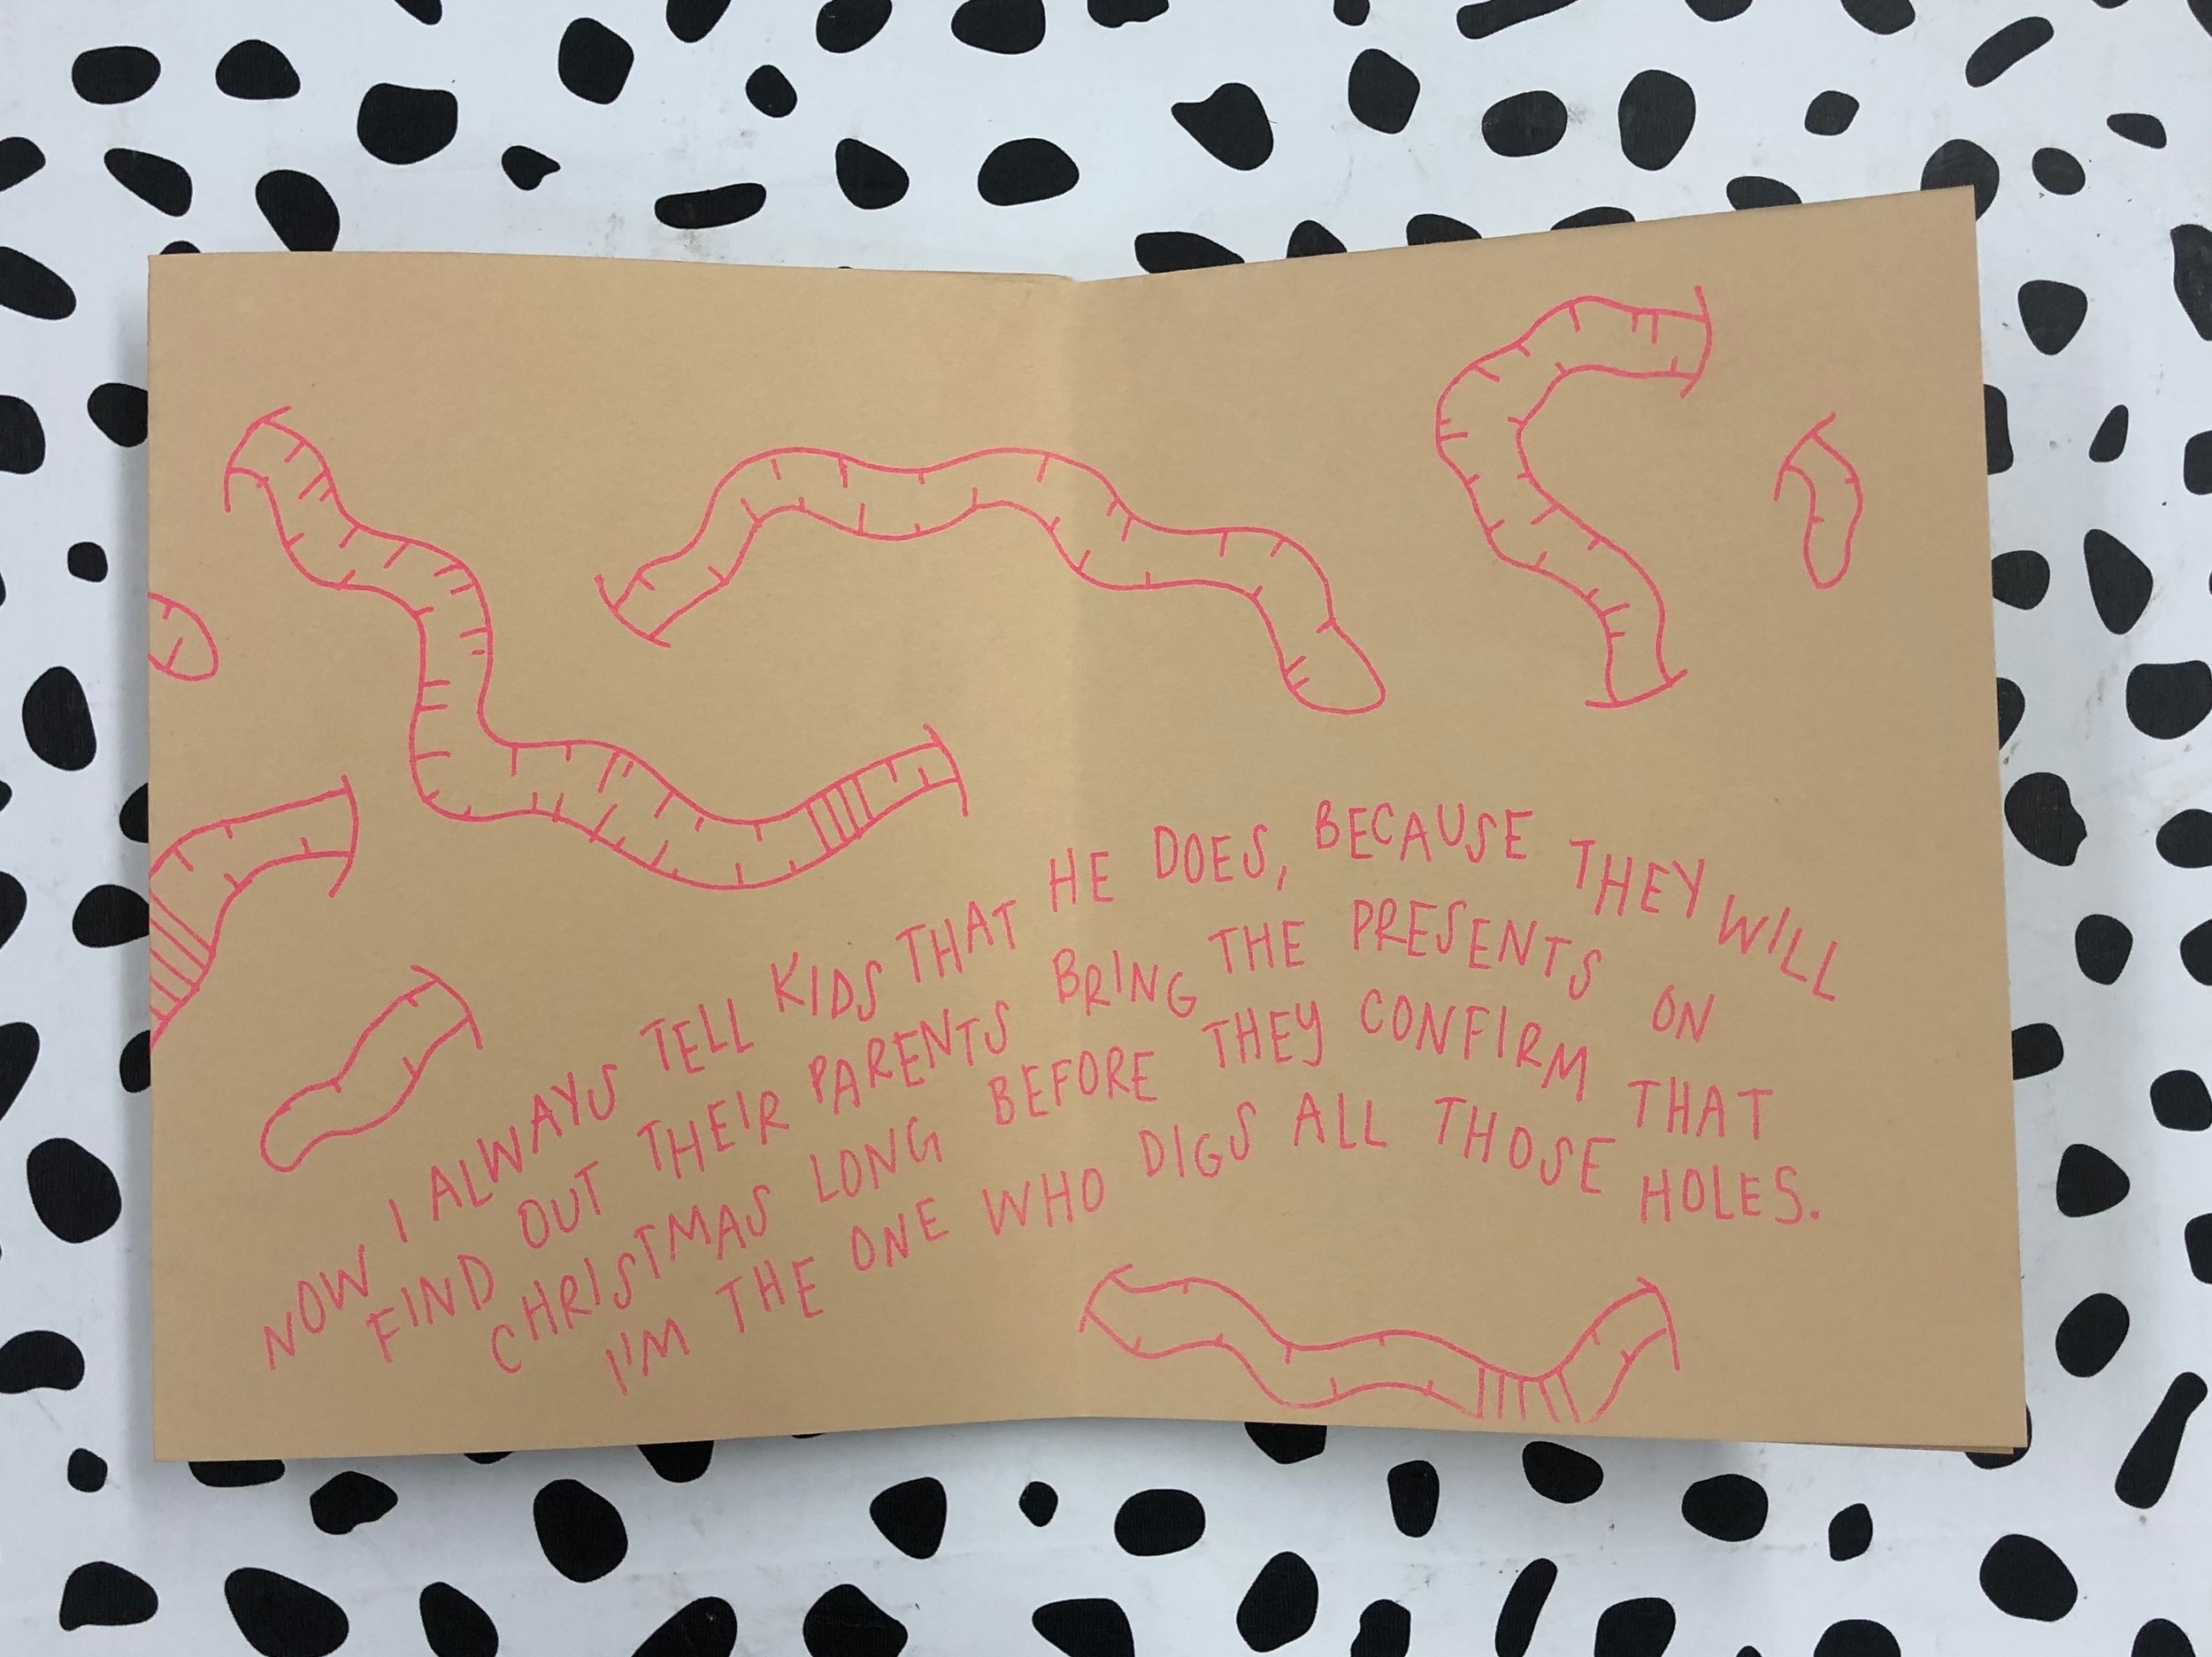 NOW I ALWAYS TELL KIDS THAT HE DOES, BECAUSE THEY WILL
FIND OUT THEIR PARENTS BRING THE PRESENTS ON
CHRISTMAS LONG BEFORE THEY CONFIRM THAT
I'M THE ONE WHO DIGS ALL THOSE HOLES.